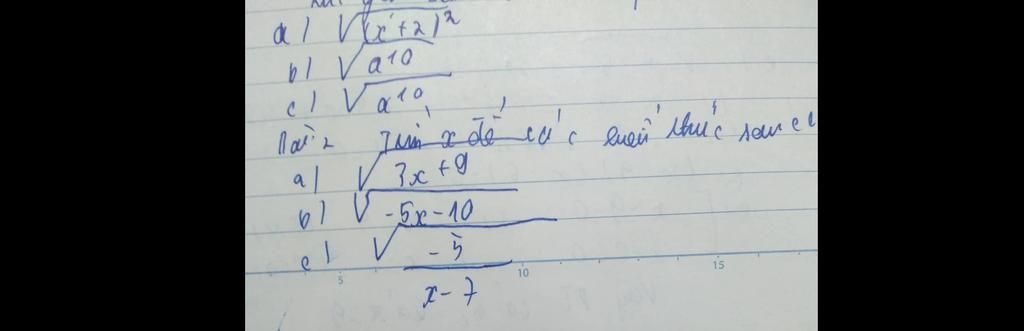 a) √(x+2)²
b) √a10
c) √a10
Bài 2 Tìm x để các biểu thức sau có
a) √3x+9
b) √-5x-10
c) √-5/x-7
5 10 15